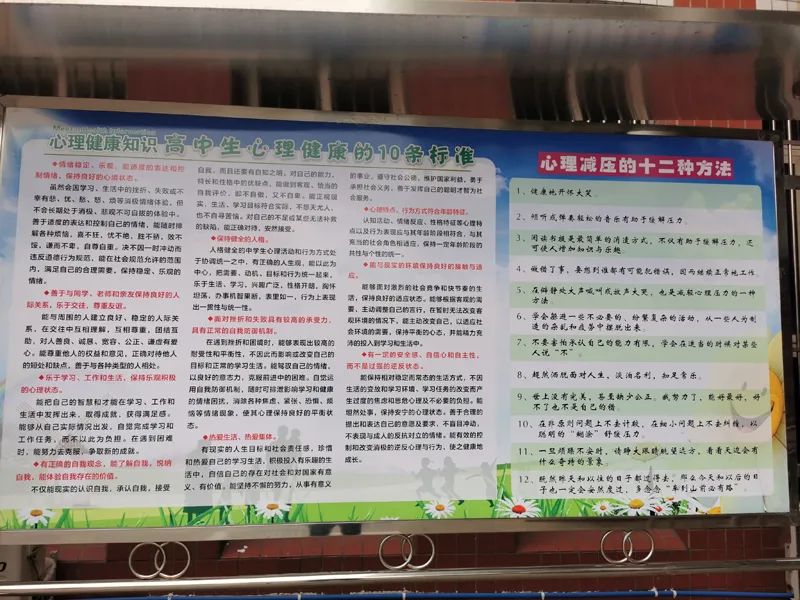 心理健康知识 高中生心理健康的10条标准
◆情绪稳定、乐观，能适度的表达和控
制情绪，保持良好的心境状态。
虽然会因学习、生活中的挫折、失败或不
幸有悲、忧、愁、怒、烦等消极情绪体验，但
不会长期处于消极、悲观不可自拔的体验中。
善于适度的表达和控制自己的情绪，能随时排
解各种烦恼，喜不狂，忧不绝，胜不骄，败不
馁，谦而不卑，自尊自重。决不因一时冲动而
违反道德行为规范，能在社会规范允许的范围
内，满足自己的合理需要，保持稳定、乐观的
情绪。
◆善于与同学、老师和亲友保持良好的人
际关系，乐于交往，尊重友谊。
能与周围的人建立良好、稳定的人际关
系，在交往中互相理解，互相尊重，团结互
助，对人善良、诚恳、宽容、公正、谦虚有爱
心。能尊重他人的权益和意见，正确对待他人
的短处和缺点，善于与各种类型的人相处。
◆乐于学习、工作和生活，保持乐观积极
的心理状态。
能把自己的智慧和才能在学习、工作和
生活中发挥出来，取得成就，获得满足感。
能够从自己实际情况出发，自觉完成学习和
工作任务，而不以此为负担。在遇到困难
时，能努力去克服，争取新的成就。
◆有正确的自我观念，能了解自我，悦纳
自我，能体验自我存在的价值。
不仅能现实的认识自我，承认自我，接受
自我，而且还要有自知之明，对自己的能力、
特长和性格中的优缺点，能做到客观、恰当的
自我评价，即不自傲，又不自卑。能正视现
实，生活、学习目标符合实际，不怨天尤人，
也不自寻苦恼。对自己的不足或某些无法补救
的缺陷，能正确对待，安然接受。
◆保持健全的人格。
人格健全的中学生心理活动和行为方式处
于协调统一之中，有正确的人生观，能以此为
中心，把需要、动机、目标和行为统一起来，
乐于生活、学习，兴趣广泛，性格开朗，胸怀
坦荡，办事机智果断，表里如一，行为上表现
出一贯性与统一性。
◆面对挫折和失败具有较高的承受力，
具有正常的自我防御机制。
在遇到挫折和困境时，能够表现出较高的
耐受性和平衡性，不因此而影响或改变自己的
目标和正常的学习生活。能驾驭自己的情绪，
以良好的意志力，克服前进中的困难。自觉运
用自我防御机制，随时可排泄影响学习和健康
的情绪困扰，消除各种焦虑、紧张、恐惧、烦
恼等情绪现象，使其心理保持良好的平衡状
态。
◆热爱生活、热爱集体。
有现实的人生目标和社会责任感，珍惜
和热爱自己的学习生活，积极投入有乐趣的生
活中，自信自己的存在对社会和对国家有意
义、有价值，能坚持不懈的努力，从事有意义
的事业，遵守社会公德，维护国家利益，勇于
承担社会义务，善于发挥自己的聪明才智为社
会服务。
◆心理特点、行为方式符合年龄特征。
认知活动、情绪反应、性格特征等心理特
点以及行为表现应与其年龄阶段相符合，与其
充当的社会角色相适应，保持一定年龄阶段的
共性与个性的统一。
◆能与现实的环境保持良好的接触与适
应。
能够面对激烈的社会竞争和快节奏的生
活，保持良好的适应状态。能够根据客观的需
要，主动调整自己的言行，在暂时无法改变客
观环境的情况下，能主动改变自己，以适应社
会环境的需要，保持平衡的心态，并能精力充
沛的投入到学习和生活中。
◆有一定的安全感、自信心和自主性，
而不是过强的逆反状态。
能保持相对稳定而常态的生活方式，不因
生活的变故和学习环境、学习任务的改变而产
生过度的焦虑和思想心理及不必要的负担。能
坦然处事，保持安宁的心理状态。善于合理的
提出和表达自己的意愿及要求，不盲目冲动，
不表现与成人的反抗对立的情绪，能有效的控
制和改变消极的逆反心理与行为，使之健康地
成长。
心理减压的十二种方法
1、健康地开怀大笑。
2、倾听或弹奏轻松的音乐有助于缓解压力。
3、阅读书报是最简单的消遣方式，不仅有助于缓解压力，还
可使人增加知识与乐趣。
4、做错了事，要想到谁都有可能犯错误，因而继续正常地工作。
5、在僻静处大声喊叫或放声大哭，也是减轻心理压力的一种
方法。
6、学会躲避一些不必要的、纷繁复杂的活动，从一些人为制
造的杂乱和疲劳中摆脱出来。
7、不要害怕承认自己的能力有限，学会在适当的时候对某些
人说“不”。
8、超然洒脱面对人生，淡泊名利，知足常乐。
9、世上没有完美，甚至缺少公正。我努力了，能好最好，好
不了也不是自己的错。
10、在非原则问题上不去计较，在细小问题上不去纠缠，以
聪明的“糊涂”舒缓压力。
11、一旦烦躁不安时，请睁大眼睛眺望远方，看看天边会有
什么奇特的景象。
12、既然昨天和以往的日子都过得去，那么今天和以后的日
子也一定会安然度过，多念念“车到山前必有路”。